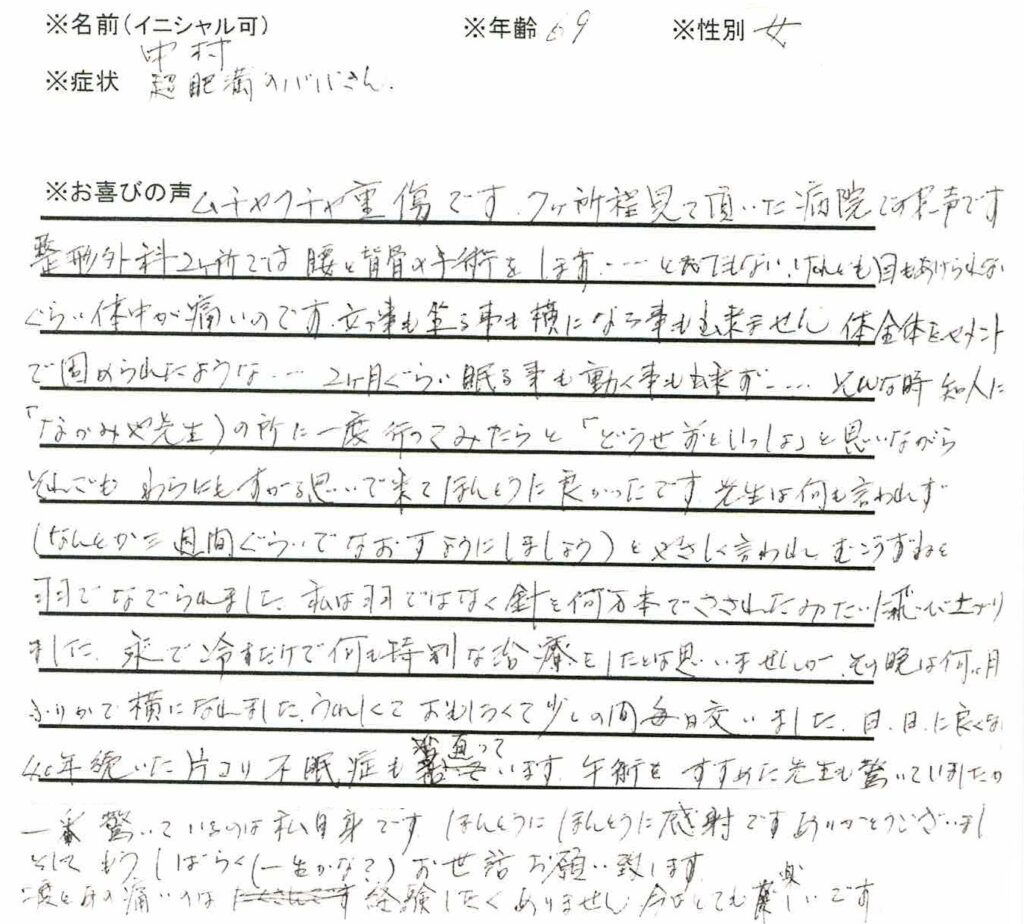 ※名前(イニシャル可) ※年齢 69 ※性別 女
中村
※症状 超肥満のババさん.
※お喜びの声 ムチャクチャ重傷です. 7ヶ所程見て頂いた病院での
整形外科2ヶ所では 腰と背骨の手術をします.…… とんでもない.けれども 目もあけられない
ぐらい体中が痛いのです.立つ事も坐る事も横になる事も出来ません 体全体をセメント
で固められたような…… 2ヶ月ぐらい眠る事も動く事も出来ず…… そんな時 知人に
「なかみや先生」の所に一度 行ってみたらと「どうせ前といっしょ」と思いながら
それでも わらにもすがる思いで来て ほんとうに良かったです.先生は何も言われず
(なんとか三週間ぐらいでなおすようにしましょう)と やさしく言われ むこうずねを
羽でなでられました.私は羽ではなく針を何万本でさされたみたいに飛び上がり
ました.氷で冷すだけで何も特別な治療をしたとは思いませんが その晩は何ヶ月
ぶりかで横になれました.うれしくて おもしろくて少しの間毎日交いました.日.日.に良くな
40年続いた片コリ 不眠症も 直って います.手術を すすめた先生も驚いていましたが
一番驚いているのは私自身です ほんとうに ほんとうに感射です ありがとうございまし
そして もう しばらく(一生かな?) お世話 お願い致します.
痛いのは 経験したくありません 今はとても 楽しいです